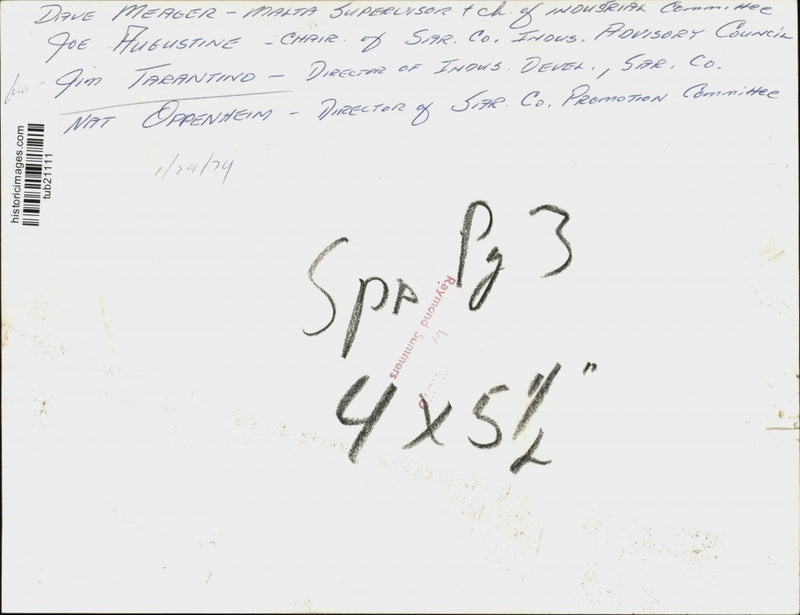 Dave Meager - Malta Supervisor + ch. of Industrial Committee
Joe Augustine - Chair. of Sar. Co. Indus. Advisory Council
Jim Tarantino - Director of Indus. Devel., Sar. Co.
Nat Oppenheim - Director of Sar. Co. Promotion Committee
historicimages.com
tub21111
1/29/74
Pg 3
Spa
by
Raymond Summers
4 x 5 1/2"